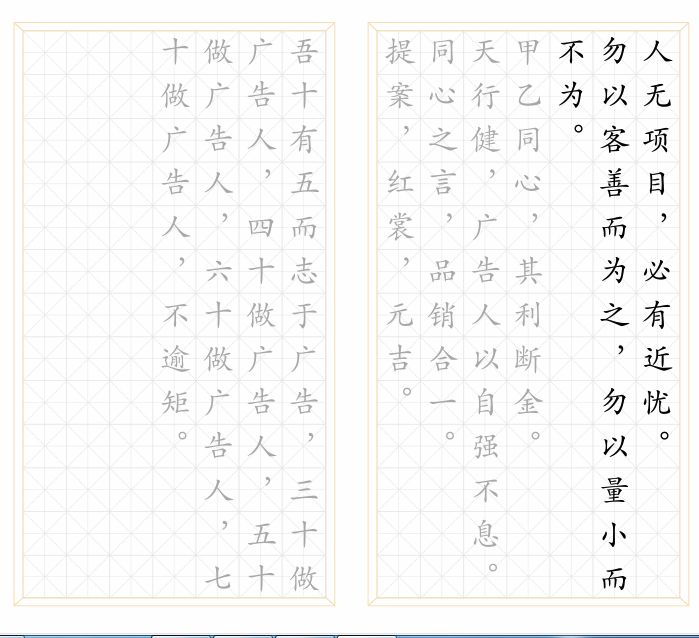 人无项目，必有近忧。
勿以客善而为之，勿以量小而
不为。
甲乙同心，其利断金。
天行健，广告人以自强不息。
同心之言，品销合一。
提案，红裳，元吉。
吾十有五而志于广告，三十做
广告人，四十做广告人，五十
做广告人，六十做广告人，七
十做广告人，不逾矩。